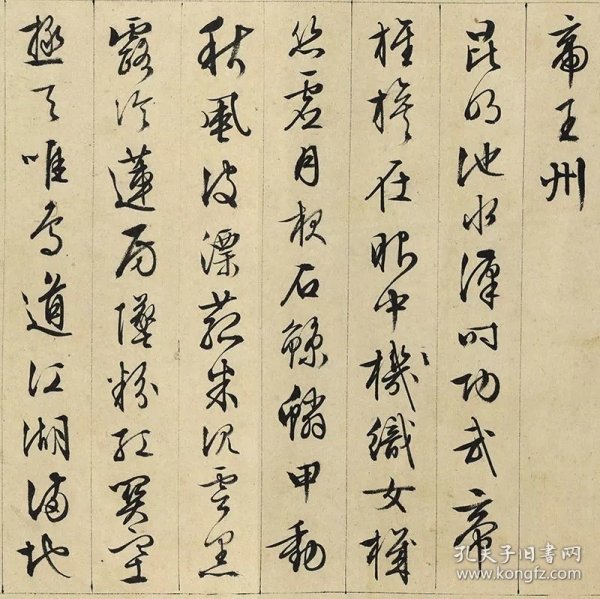 帝王州
昆明池水漢時功武帝
旌旗在眼中機織女機
絲虛月夜石鯨鱗甲動
秋風波漂菰米沉雲黑
露冷蓮房墜粉紅關塞
極天唯鳥道江湖滿地
孔夫子旧书网
www.kongfz.com